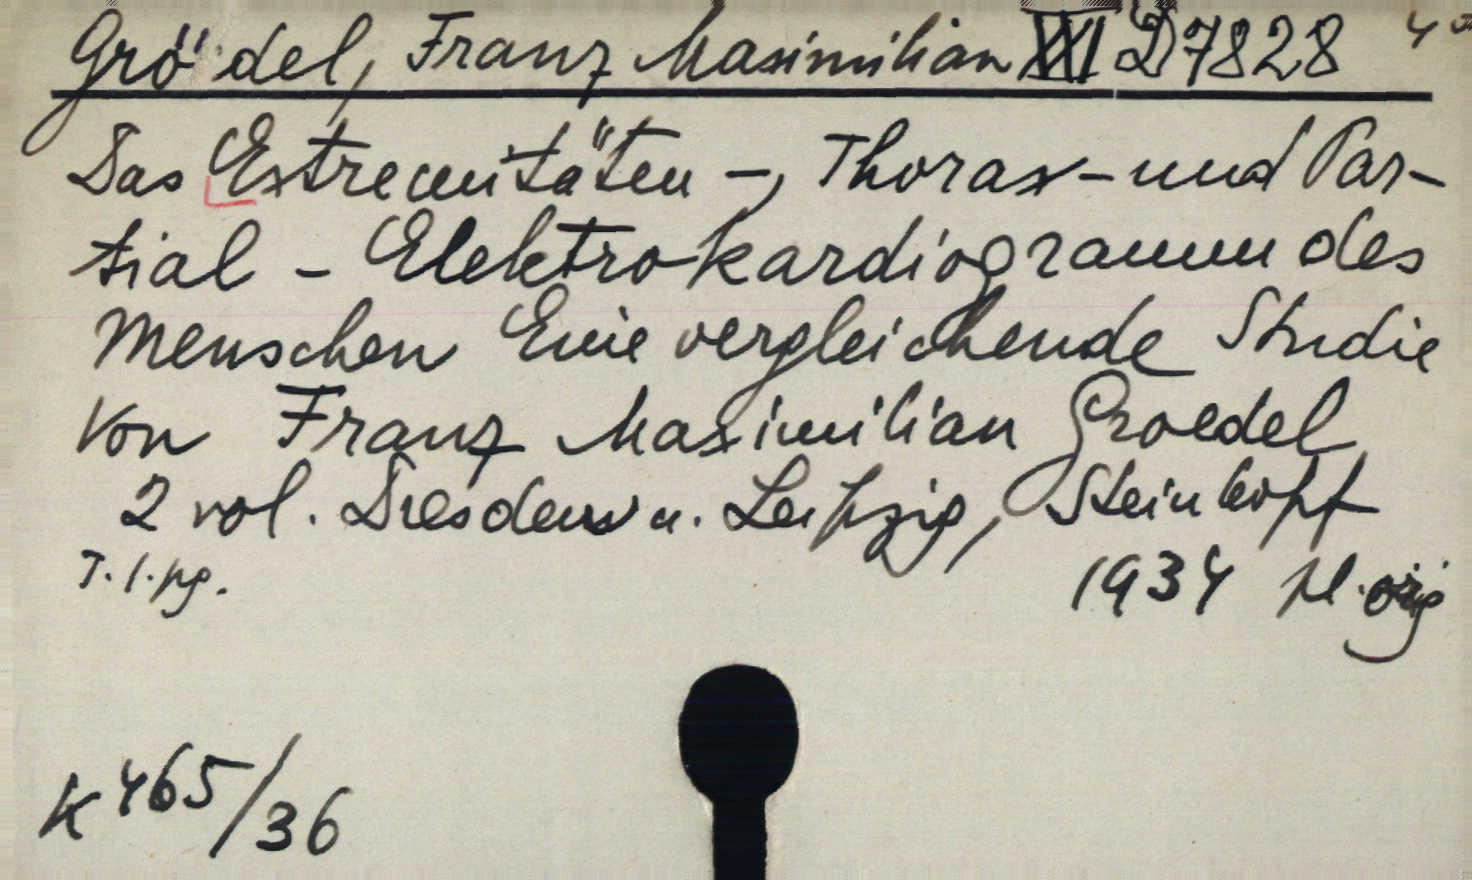 Grödel, Franz Maximilian XXI D 7828 4°
Das Extremitäten-, Thorax- und Par-
tial - Elektrokardiogramm des
Menschen Eine vergleichende Studie
von Franz Maximilian Groedel
2 vol. Dresden u. Leipzig, Steinkopff
T. 1. pg. 1934 pl. orig
K 465/36